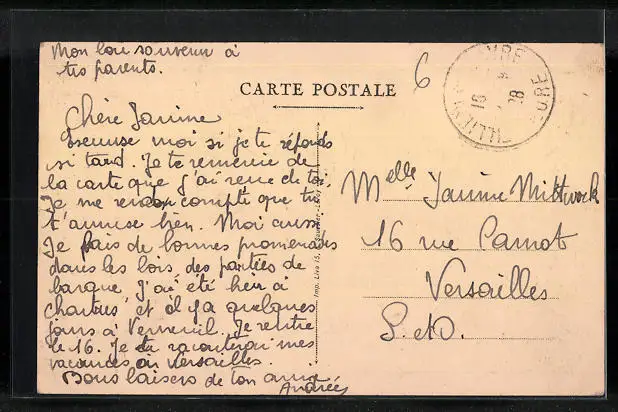 Mon bon souvenir à
tes parents.
CARTE POSTALE
6
Chère Janine
Excuse moi si je te réponds
si tard. Je te remercie de
la carte que j'ai reçue de toi,
Je me rends compte que tu
t'amuse bien. Moi aussi
Je fais de bonnes promenades
dans les bois, des parties de
barque, j'ai été hier à
chartres, et il y a quelques
jours à Verneuil. Je rentre
le 16. Je te raconterai mes
vacances à Versailles.
Bons baisers de ton amie
Andrée
Melle Janine Mittwock
16 rue Carnot
Versailles
S. et O.
Imp. Lévy